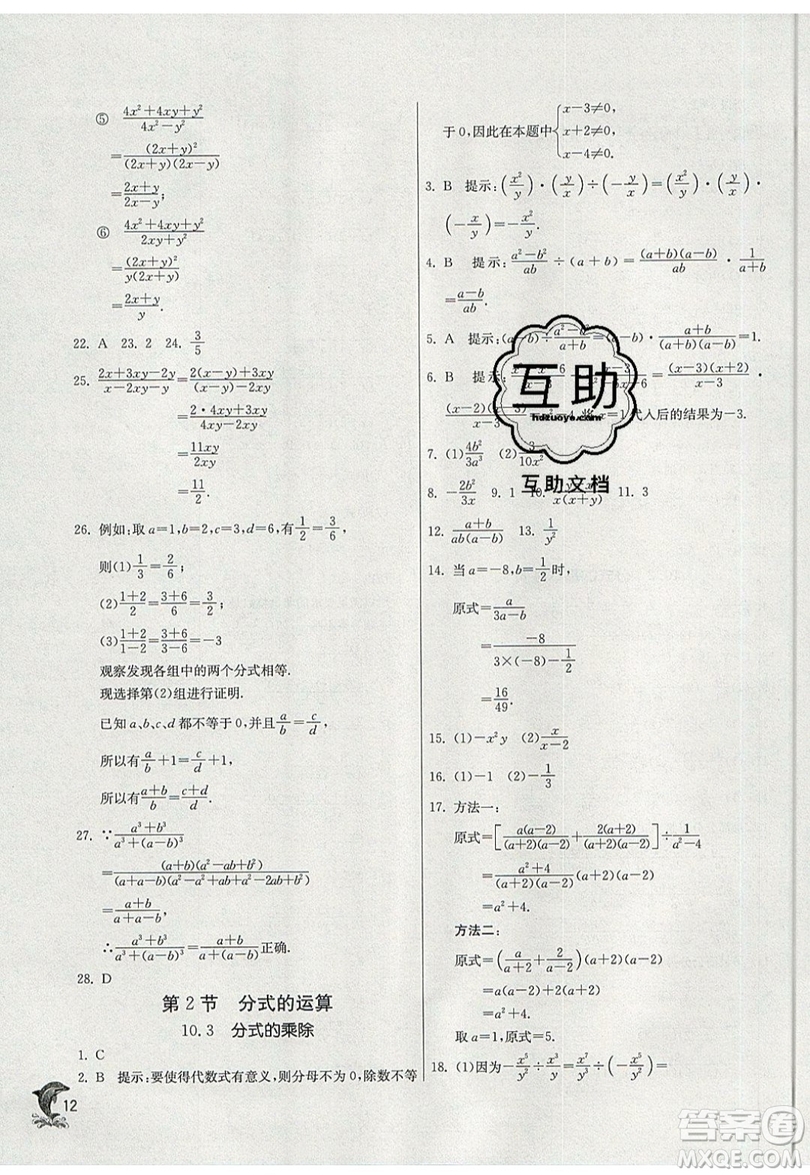 ⑤ (4x²+4xy+y²)/(4x²−y²)
=(2x+y)²/((2x+y)(2x−y))
=(2x+y)/(2x−y);
⑥ (4x²+4xy+y²)/(2xy+y²)
=(2x+y)²/(y(2x+y))
=(2x+y)/y.
22. A 23. 2 24. 3/5
25. (2x+3xy−2y)/(x−2xy−y)=(2(x−y)+3xy)/((x−y)−2xy)
=(2·4xy+3xy)/(4xy−2xy)
=11xy/2xy
=11/2.
26. 例如:取 a=1,b=2,c=3,d=6,有1/2=3/6,
则(1)1/3=2/6;
(2)(1+2)/2=(3+6)/6;
(3)(1+2)/(1−2)=(3+6)/(3−6)=−3
观察发现各组中的两个分式相等.
现选择第(2)组进行证明.
已知 a、b、c、d 都不等于 0,并且a/b=c/d,
所以有a/b+1=c/d+1,
所以有(a+b)/b=(c+d)/d.
27. ∵(a³+b³)/(a³+(a−b)³)
=((a+b)(a²−ab+b²))/((a+a−b)(a²−a²+ab+a²−2ab+b²))
=(a+b)/(a+a−b).
∴(a³+b³)/(a³+(a−b)³)=(a+b)/(a+a−b)正确.
28. D
第 2 节 分式的运算
10.3 分式的乘除
1. C
2. B 提示:要使得代数式有意义,则分母不为 0,除数不等
12
于 0,因此在本题中{x−3≠0, x+2≠0, x−4≠0.
3. B 提示:(x²/y)·(y/x)÷(−y/x)=(x²/y)·(y/x)·
(−x/y)=−x²/y.
4. B 提示:(a²−b²)/ab÷(a+b)=((a+b)(a−b))/ab·1/(a+b)
=(a−b)/ab.
5. A 提示:(a−b)÷(a²−b²)/(a+b)=(a−b)·(a+b)/((a+b)(a−b))=1.
6. B 提示: =((x−3)(x+2))/(x−3)·
((x−2)(x−3))/ 4,将 x=1 代入后的结果为−3.
7. (1)4b²/3a³ (2) /10x²
8. −2b²/3x 9. 1 10. /x(x+y) 11. 3
12. (a+b)/(ab(a−b)) 13. 1/y²
14. 当 a=−8,b=1/2时,
原式=a/(3a−b)
=−8/(3×(−8)−1/2)
=16/49.
15. (1)−x²y (2)x/(x−2)
16. (1)−1 (2)−1/3
17. 方法一:
原式=[a(a−2)/((a+2)(a−2))+2(a+2)/((a+2)(a−2))]÷1/(a²−4)
=(a²+4)/((a+2)(a−2))·(a+2)(a−2)
=a²+4.
方法二:
原式=(a/(a+2)+2/(a−2))(a+2)(a−2)
=a(a−2)+2(a+2)
=a²+4.
取 a=1,原式=5.
18. (1)因为−x⁵/y²÷x³/y=x⁷/y³÷(−x⁵/y²)=
互助
hdzuoye.com
互助文档
答案圈
MXQE.COM